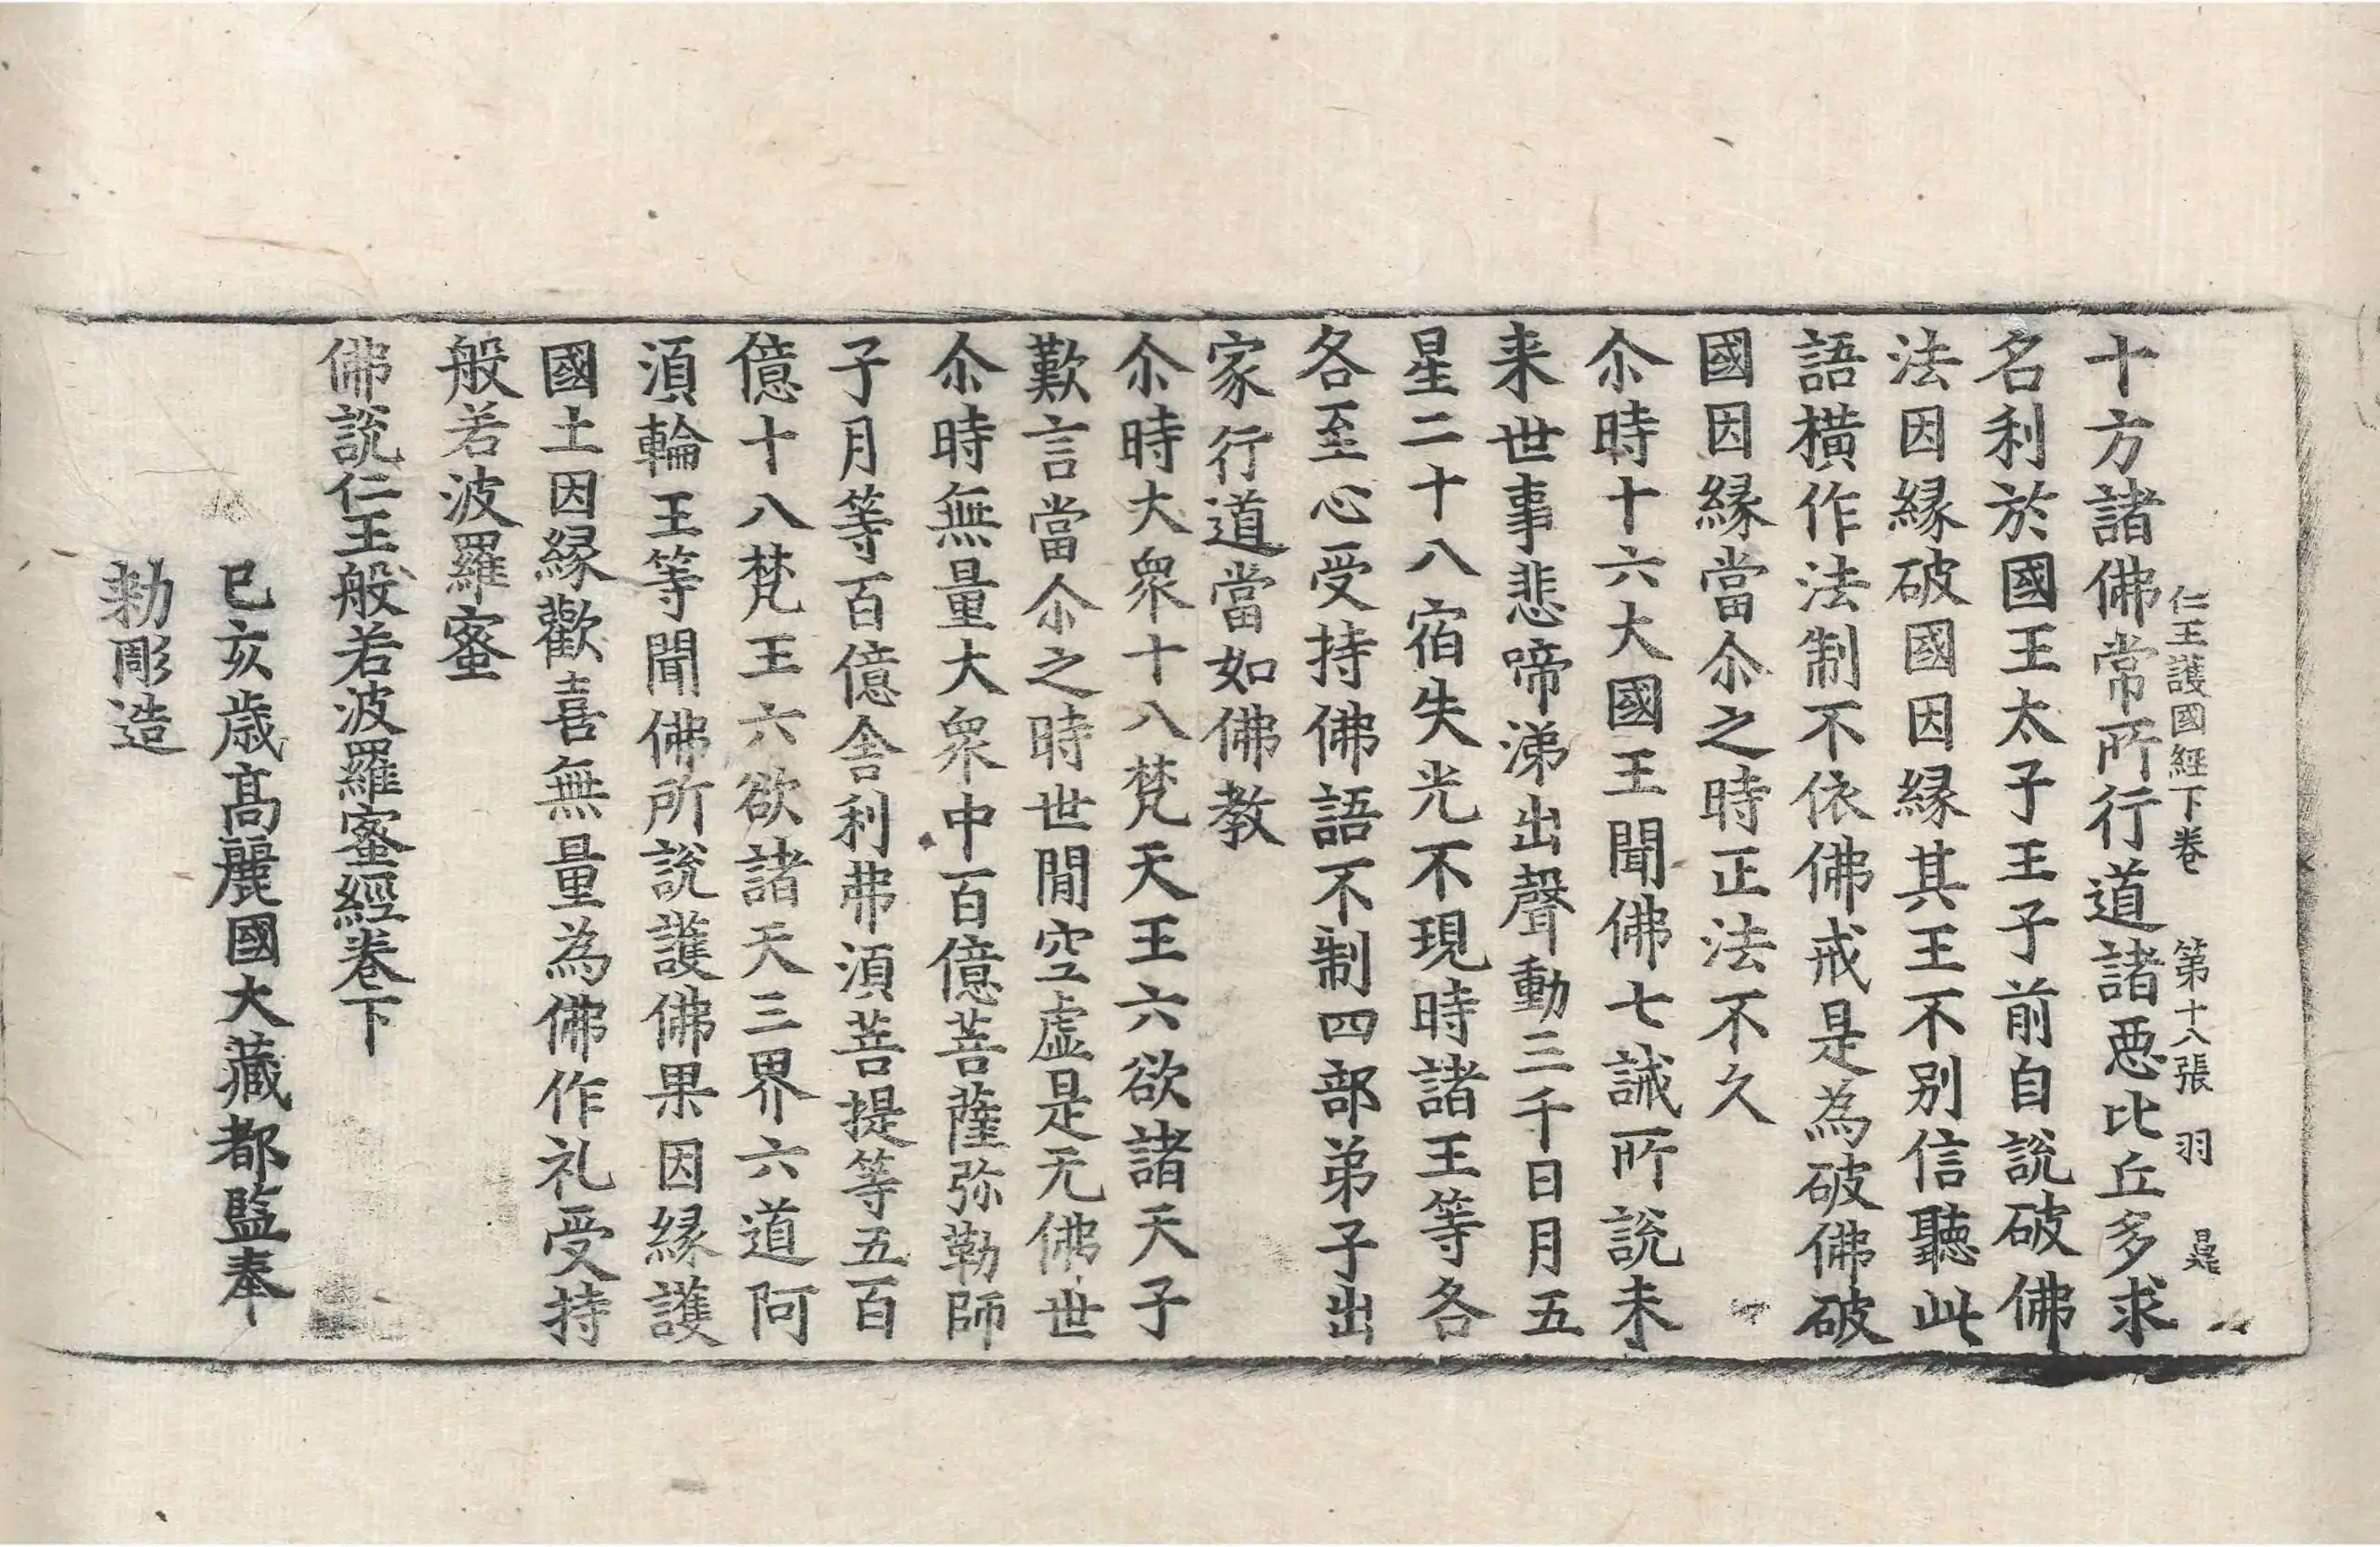 仁王護國經下卷　第十八張　羽
十方諸佛常所行道諸惡比丘多求
名利於國王太子王子前自說破佛
法因緣破國因緣其王不別信聽此
語橫作法制不依佛戒是為破佛破
國因緣當尒之時正法不久
尒時十六大國王聞佛七誡所說未
来世事悲啼涕出聲動三千日月五
星二十八宿失光不現時諸王等各
各至心受持佛語不制四部弟子出
家行道當如佛教
尒時大衆十八梵天王六欲諸天子
歎言當尒之時世閒空虛是无佛世
尒時無量大衆中百億菩薩弥勒師
子月等百億舍利弗須菩提等五百
億十八梵王六欲諸天三界六道阿
須輪王等聞佛所說護佛果因緣護
國土因緣歡喜無量為佛作礼受持
般若波羅蜜
佛說仁王般若波羅蜜經卷下
己亥歲高麗國大藏都監奉
勅彫造